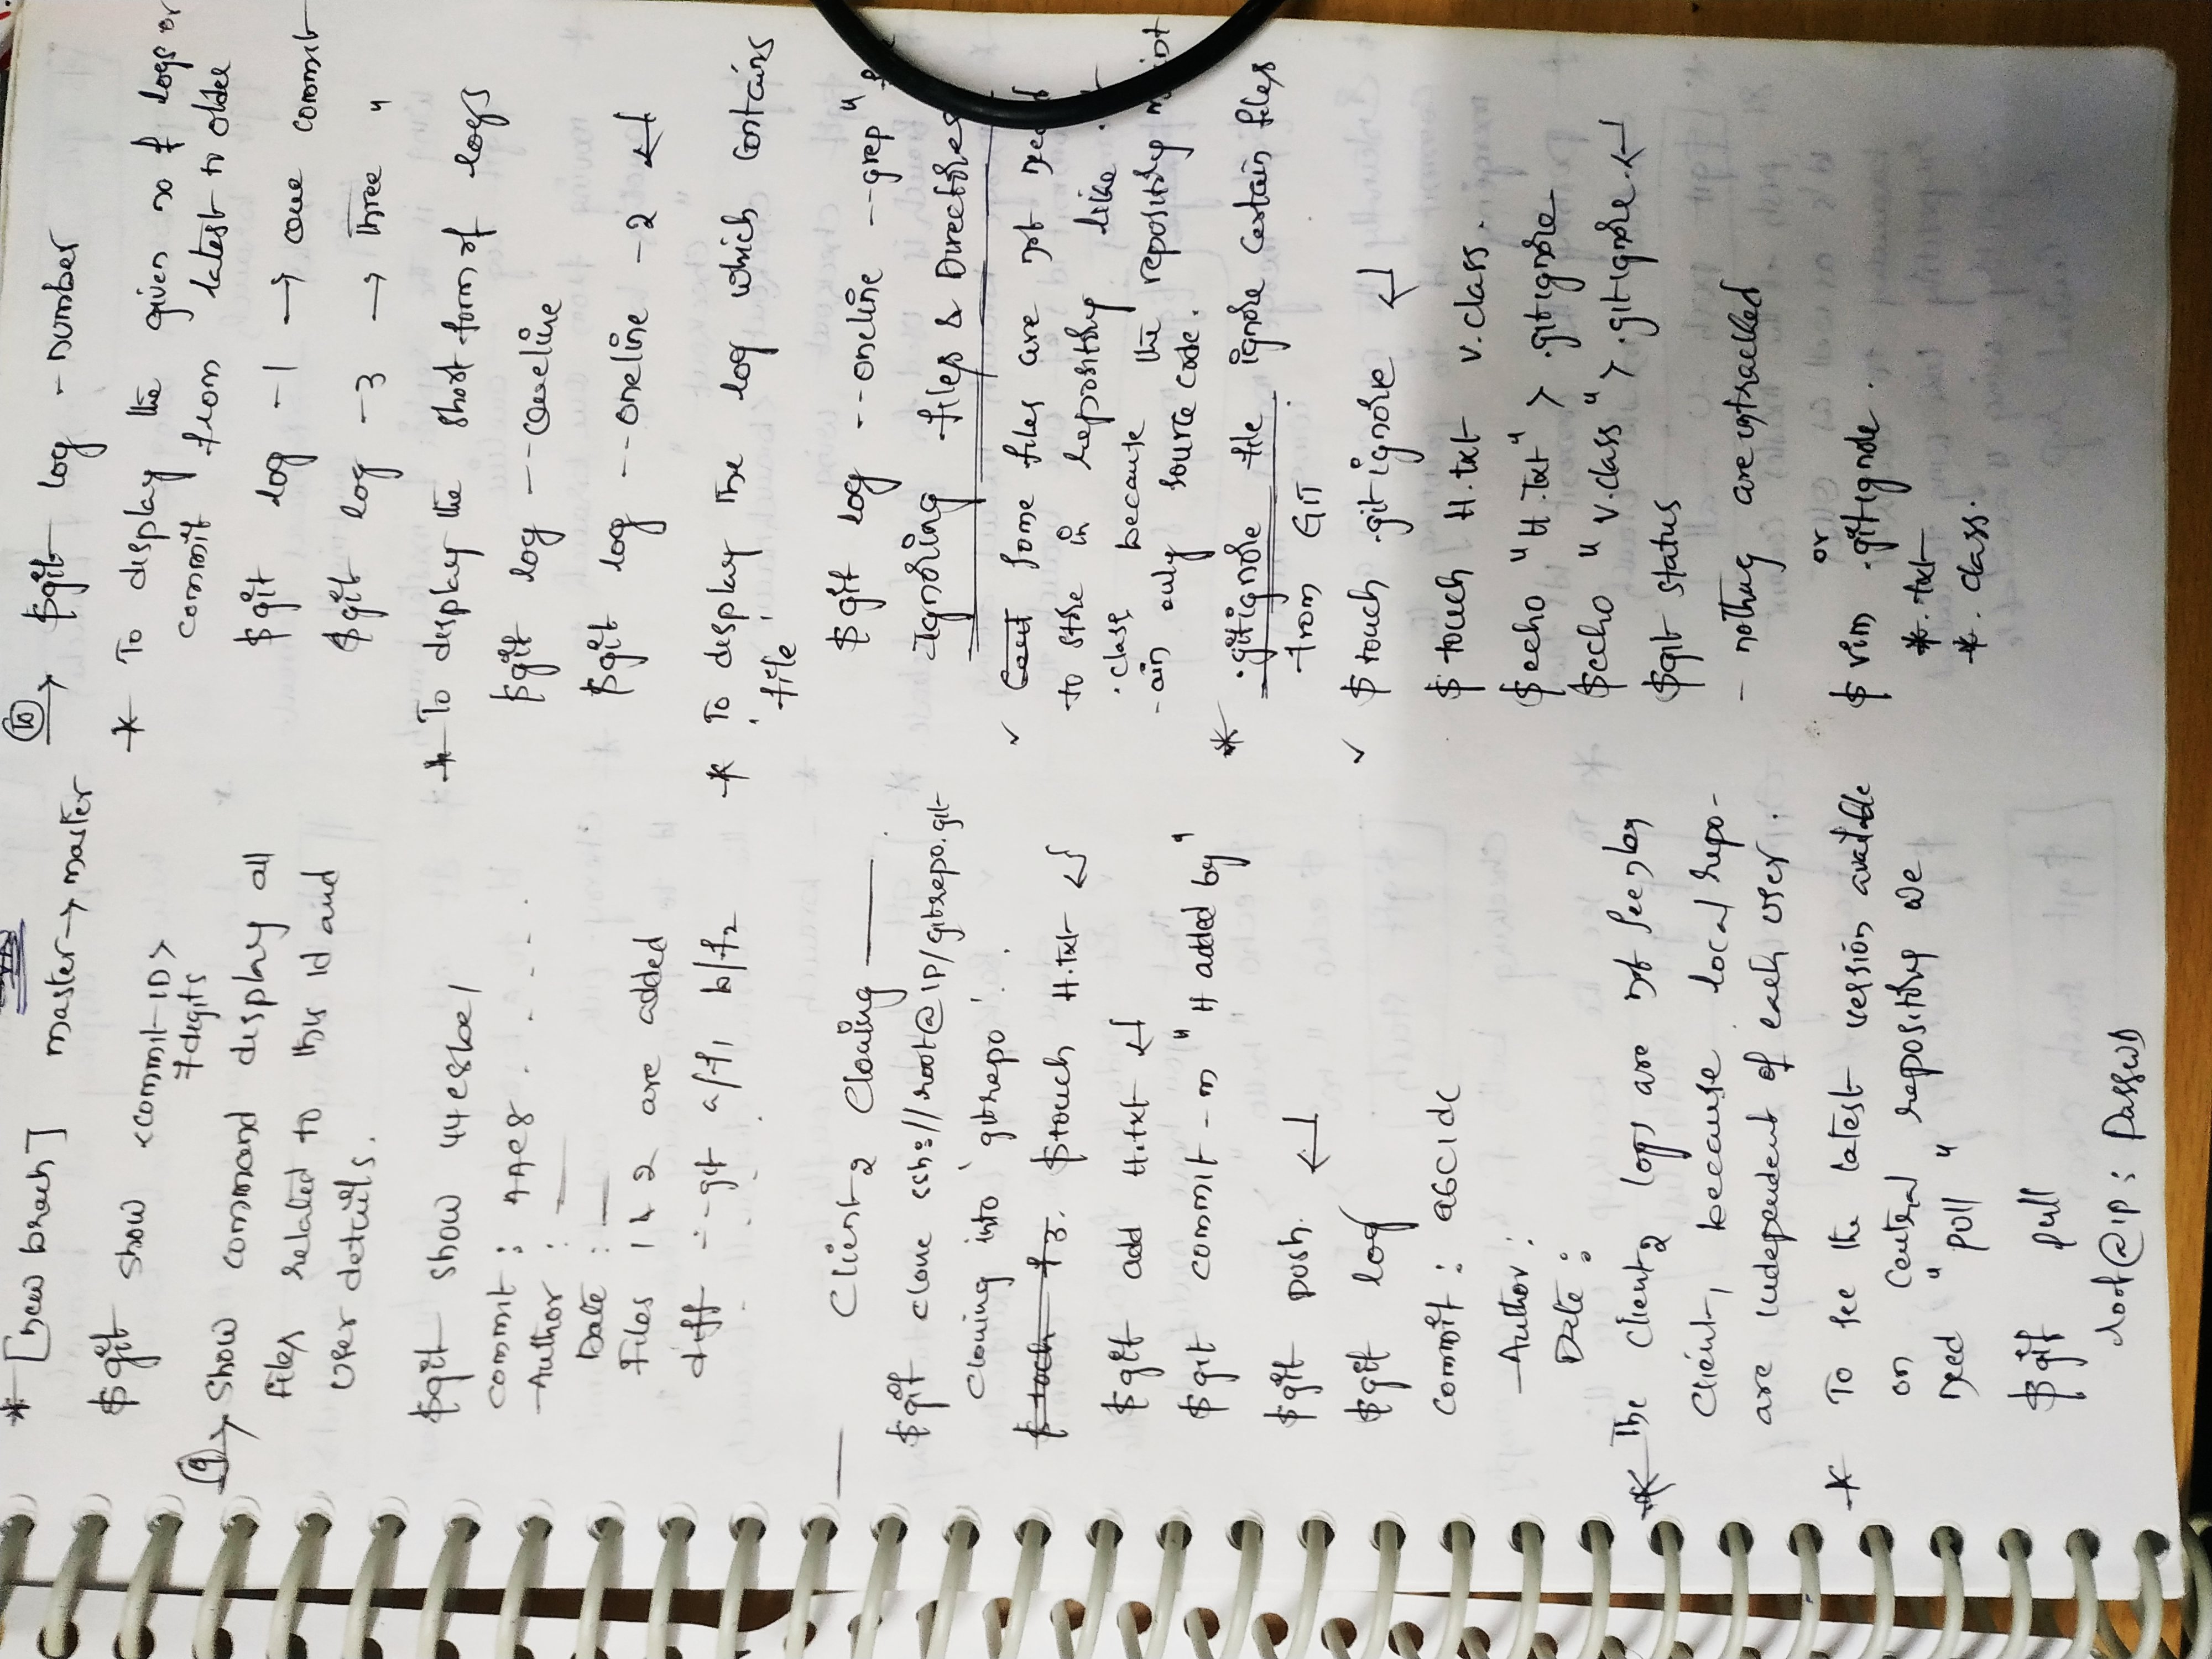 * [new brach] master → master
$git show <commit-ID>
7digits
9 → Show command display all
files related to this id and
User details.
$git show 44e8be1
commit : 44e8 . - - - .
Author : —
Date : —
Files 1 & 2 are added
diff --git a/f1 b/f2
— Client2 Cloning —
$git clone ssh://root@IP/gitrepo.git
Cloning into 'gitrepo' . .
$ toch f3. $touch H.txt ↵
$git add H.txt ↵
$git commit -m "H added by"
$git push. ↵
$git log
commit : a6c1dc
Author :
Date :
* The client2 logs are not seen by
client1 because local repo-
are independent of each user.
* To see the latest version available
on Central repository we
need "pull"
$git pull
root@ip : PassWD
10 → $git log -number
* To display the given no of logs or
commit from latest to older
$git log -1 → one commit
$git log -3 → Three "
* To display the short form of logs
$git log --oneline
$git log --oneline -2 ↵
* To display the log which contains
'file'
$git log --oneline --grep "
Ignoring files & Directories
✓ some files are not need
to store in repository like
.class because the repository maint
-ain only source code.
* .gitignore file ignore certain files
from GIT
✓ $touch .gitignore ↵
$touch H.txt V.class.
$echo "H.txt" > .gitignore
$echo "V.class" > .gitignore. ↵
$git status
- nothng are untracked
or
$vim .gitignole .
*.txt
*. class.